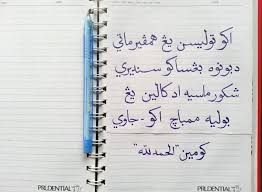 اکو توليسن يڠ همڤيرماتي
دبونوه بڠساکو سنديري
شکور ماسيه اد کالين يڠ
بوليه ممباچ اکو-جاوي
کومين "الحمدلله"
PRUDENTIAL
PRUDENTIAL